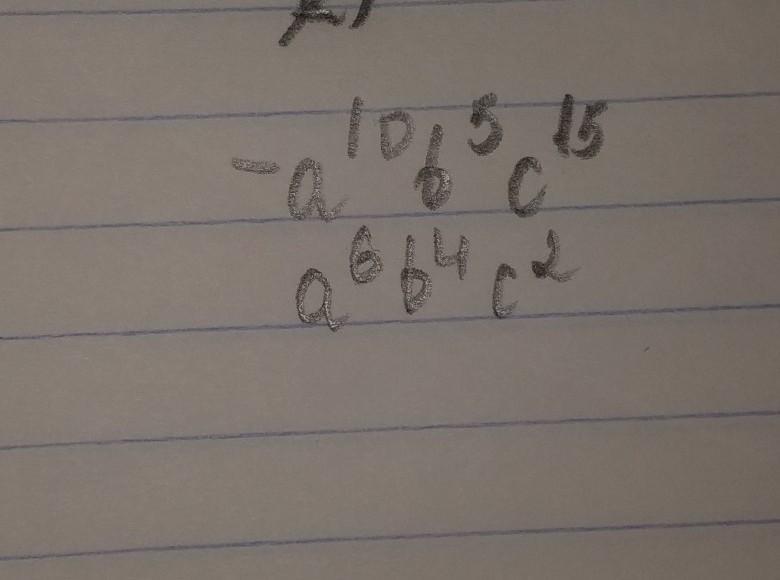 -a¹⁰b⁵c¹⁵
a⁶b⁴c²